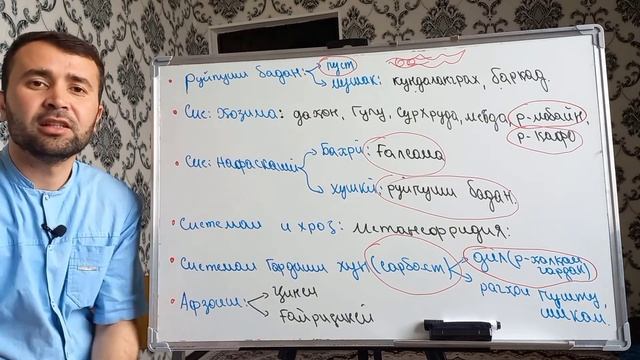 Руйпуши бадан: пуст
мушак: кундаланграх, баркад.
Сис: Хозима: дахон, Гулу, Сурхруда, меъда, р-мобайн,
р-қафо
Сис: Нафаскаши Бахрӣ: Ғалсама
хушкӣ: руйпуши бадан.
Системаи ихроҷ: метанефридия:
Системаи Гардиши хун (сарбаст) дил (р-халқаи
гардан)
рагҳои пушту
шикам.
Афзоиш: Ҷинсӣ
Ғайриҷинсӣ